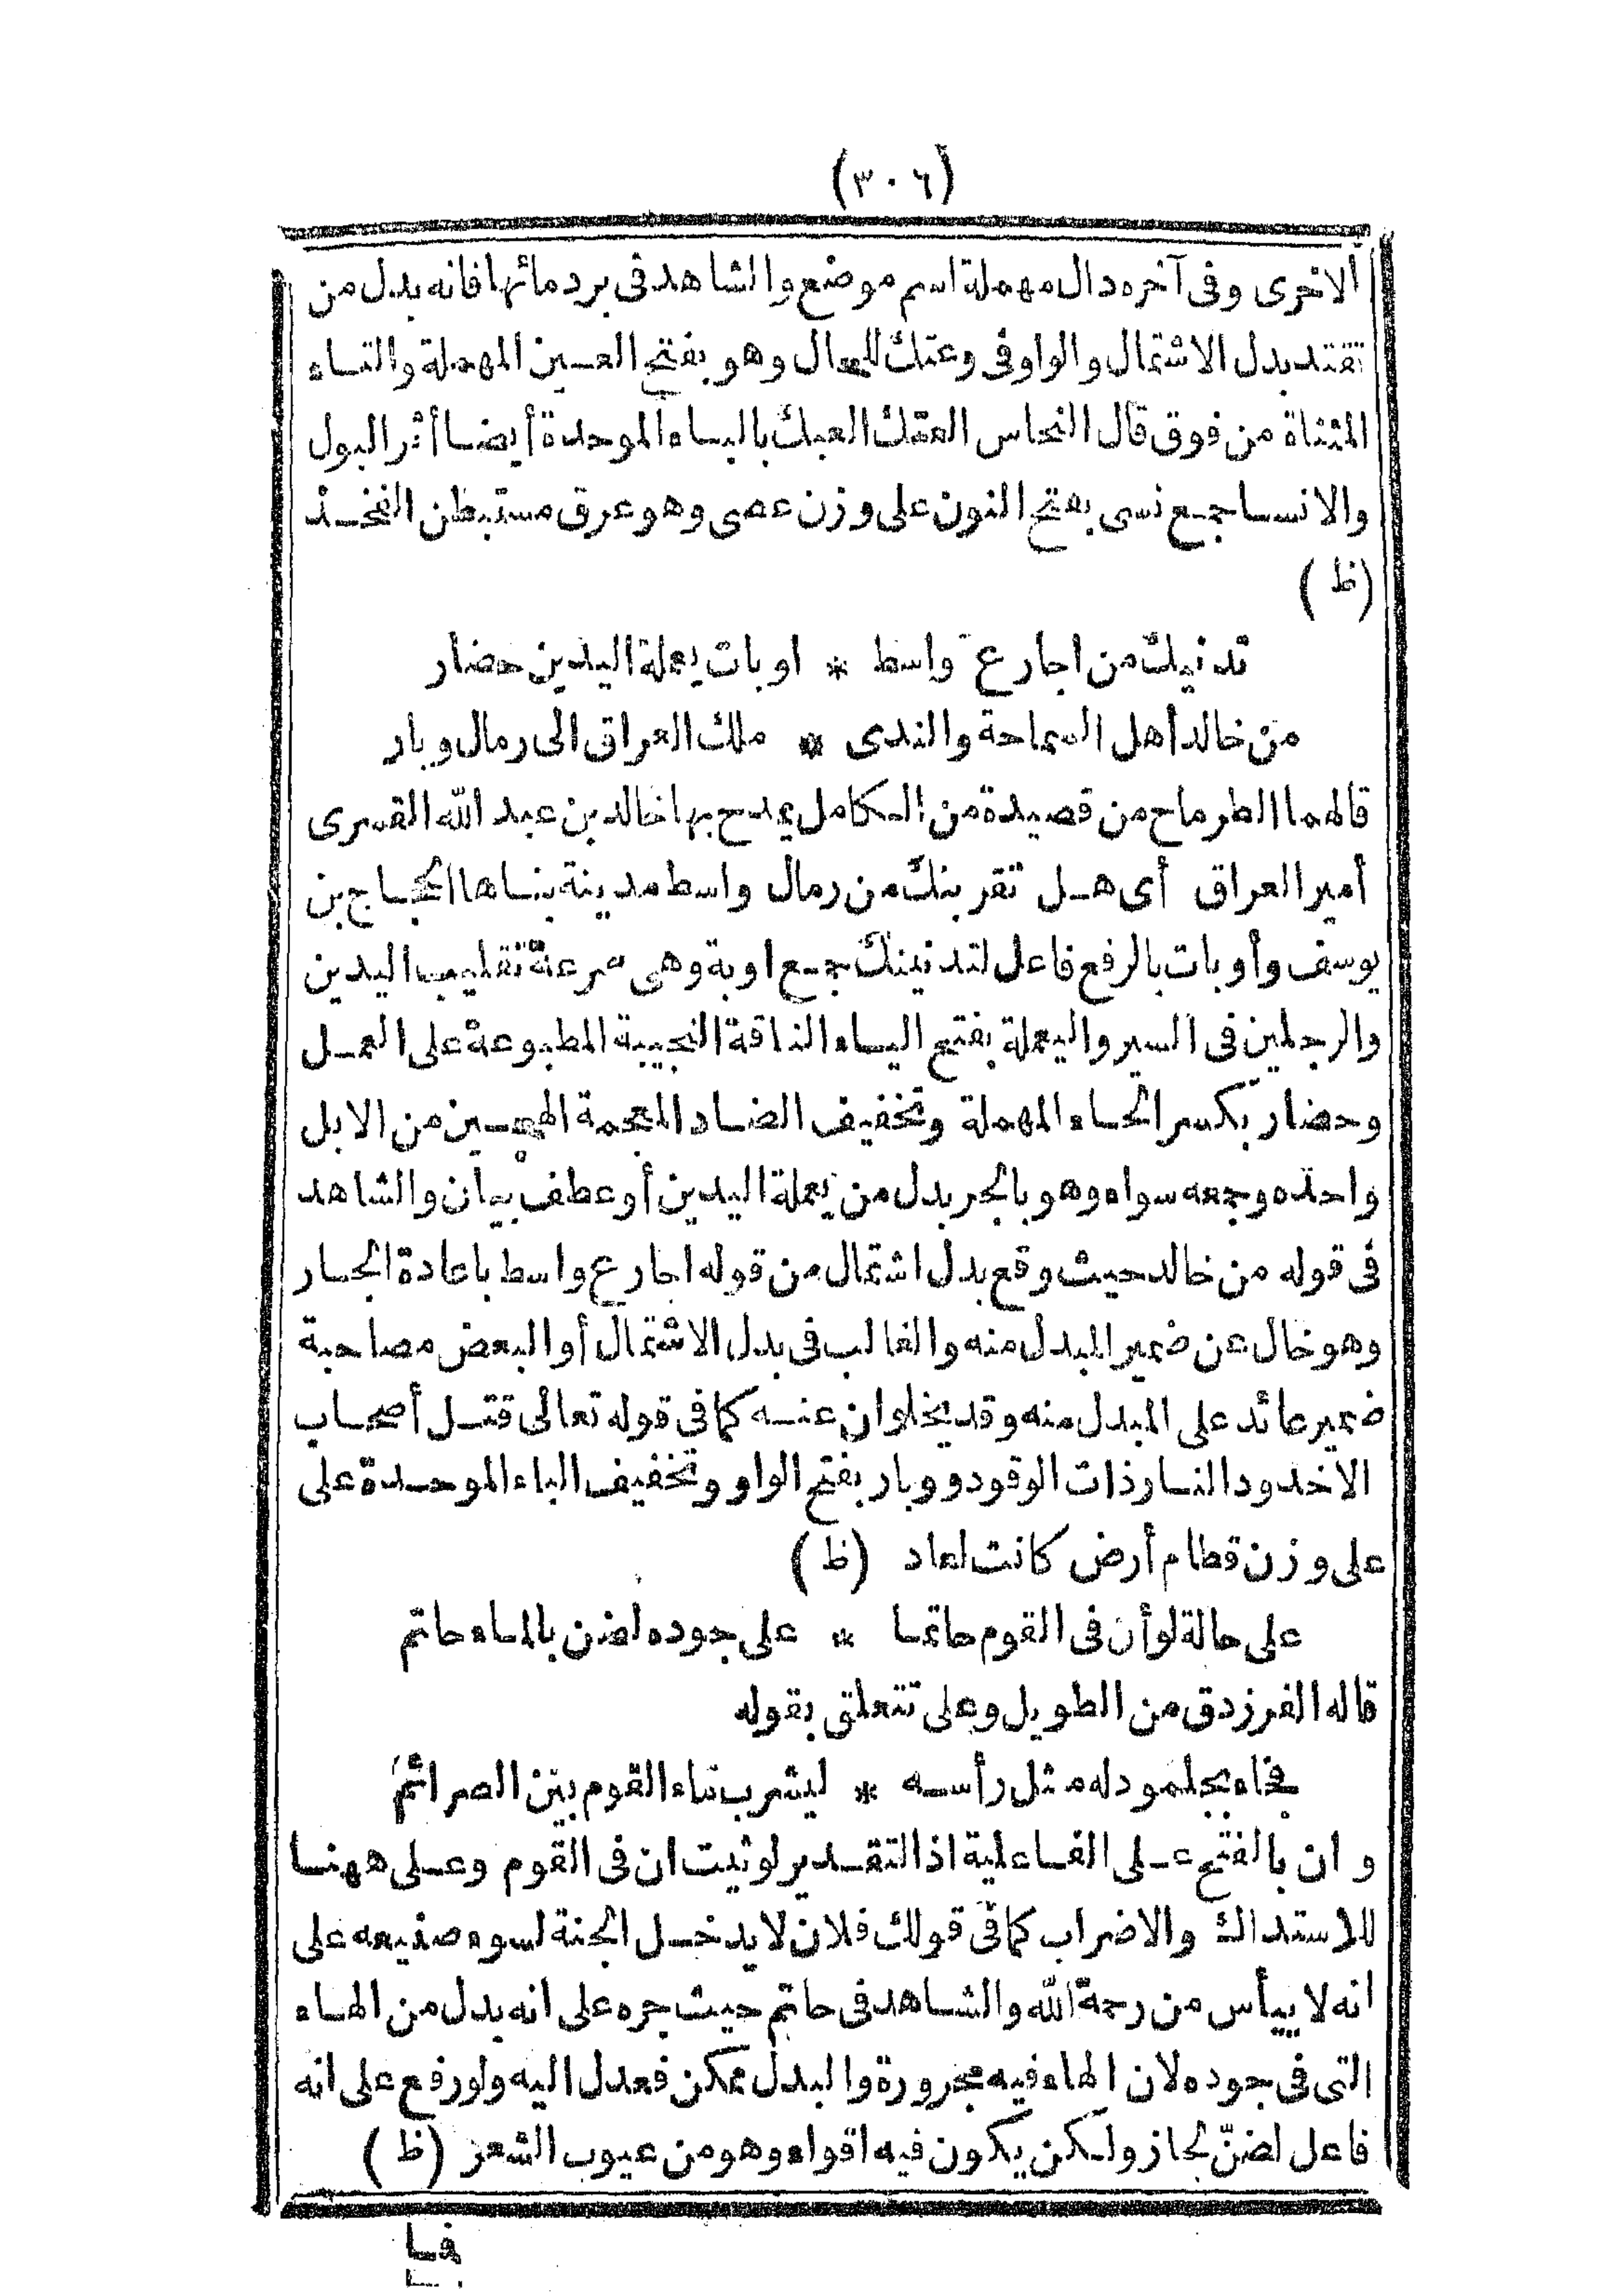 (٣٠٦)
الاخرى وفى آخره دال مهملة اسم موضع والشاهد فى برد مائها فانه بدل من
تقتد بدل الاشتمال والواو فى وعتك للحال وهو بفتح العين المهملة والتاء
المثناة من فوق قال النحاس العتك العبك بالباء الموحدة أيضا أثر البول
والانسا جمع نسى بفتح النون على وزن عصى وهو عرق مستبطن الفخذ
(ظ)
تدنيك من اجارع واسط * اوبات يعملة اليدين حضار
من خالد أهل السماحة والندى * ملك العراق الى رمال وبار
قالهما الطرماح من قصيدة من الكامل يمدح بها خالد بن عبد الله القسرى
أمير العراق أى هل تقربنك من رمال واسط مدينة بناها الحجاج بن
يوسف وأوبات بالرفع فاعل لتدنينك جمع اوبة وهى سرعة تقليب اليدين
والرجلين فى السير واليعملة بفتح الياء الناقة النجيبة المطبوعة على العمل
وحضار بكسر الحاء المهملة وتخفيف الضاد المعجمة الهجين من الابل
واحده وجمعه سواء وهو بالجر بدل من يعملة اليدين أو عطف بيان والشاهد
فى قوله من خالد حيث وقع بدل اشتمال من قوله اجارع واسط باعادة الجار
وهو خال عن ضمير المبدل منه والغالب فى بدل الاشتمال أو البعض مصاحبة
ضمير عائد على المبدل منه وقد يخلوان عنه كما فى قوله تعالى قتل أصحاب
الاخدود النار ذات الوقود ووبار بفتح الواو وتخفيف الباء الموحدة على
على وزن قطام أرض كانت لعاد (ظ)
على حالة لو أن فى القوم حاتما * على جوده لضن بالماء حاتم
قاله الفرزدق من الطويل وعلى تتعلق بقوله
فجاء بجلمود له مثل رأسه * ليشرب ماء القوم بين الصرائم
وان بالفتح على الفاعلية اذ التقدير لو ثبت ان فى القوم وعلى ههنا
للاستدراك والاضراب كما فى قولك فلان لا يدخل الجنة لسوء صنيعه على
انه لا ييأس من رحمة الله والشاهد فى حاتم حيث جره على انه بدل من الهاء
التى فى جوده لان الهاء فيه مجرورة والبدل ممكن فعدل اليه ولو رفع على انه
فاعل لضنّ لجاز ولكن يكون فيه اقواء وهو من عيوب الشعر (ظ)